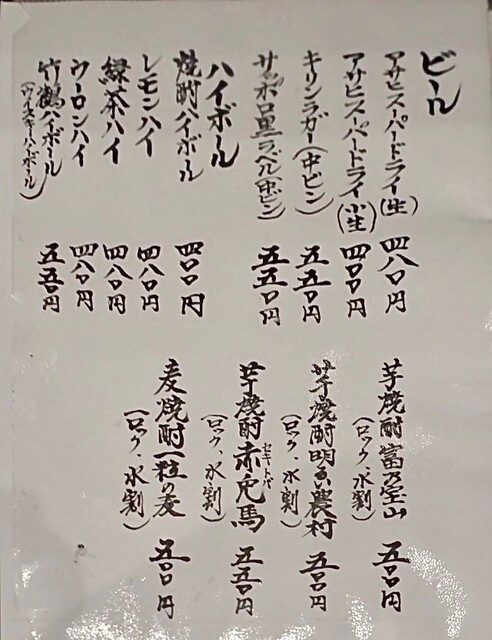 ビール
アサヒスーパードライ(生) 四八〇円
アサヒスーパードライ(小生) 四〇〇円
キリンラガー(中ビン) 五五〇円
サッポロ黒ラベル(中ビン) 五五〇円
ハイボール
焼酎ハイボール 四〇〇円
レモンハイ 四八〇円
緑茶ハイ 四八〇円
ウーロンハイ 四八〇円
竹鶴ハイボール 五五〇円
(ウイスキーハイボール)
芋焼酎富乃宝山 五〇〇円
(ロック、水割)
芋焼酎明るい農村 五〇〇円
(ロック、水割)
芋焼酎赤兎馬 五五〇円
セキトバ
(ロック、水割)
麦焼酎一粒の麦 五〇〇円
(ロック、水割)